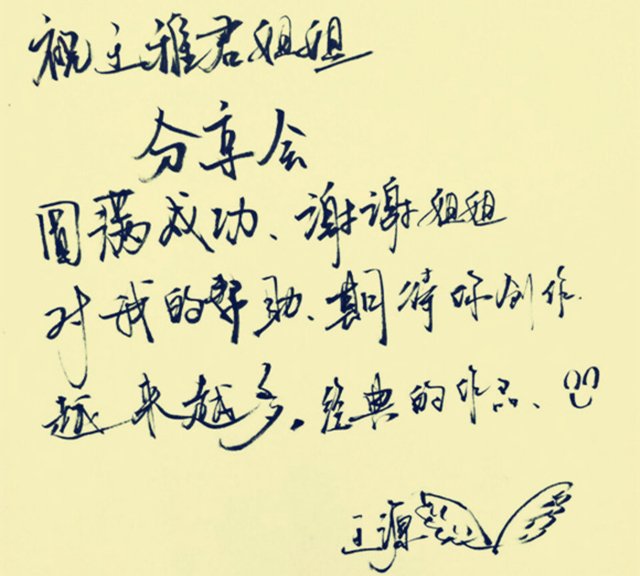 祝王雅君姐姐
分享会
圆满成功、谢谢姐姐
对我的帮助、期待你创作
越来越多,经典的作品、
王源